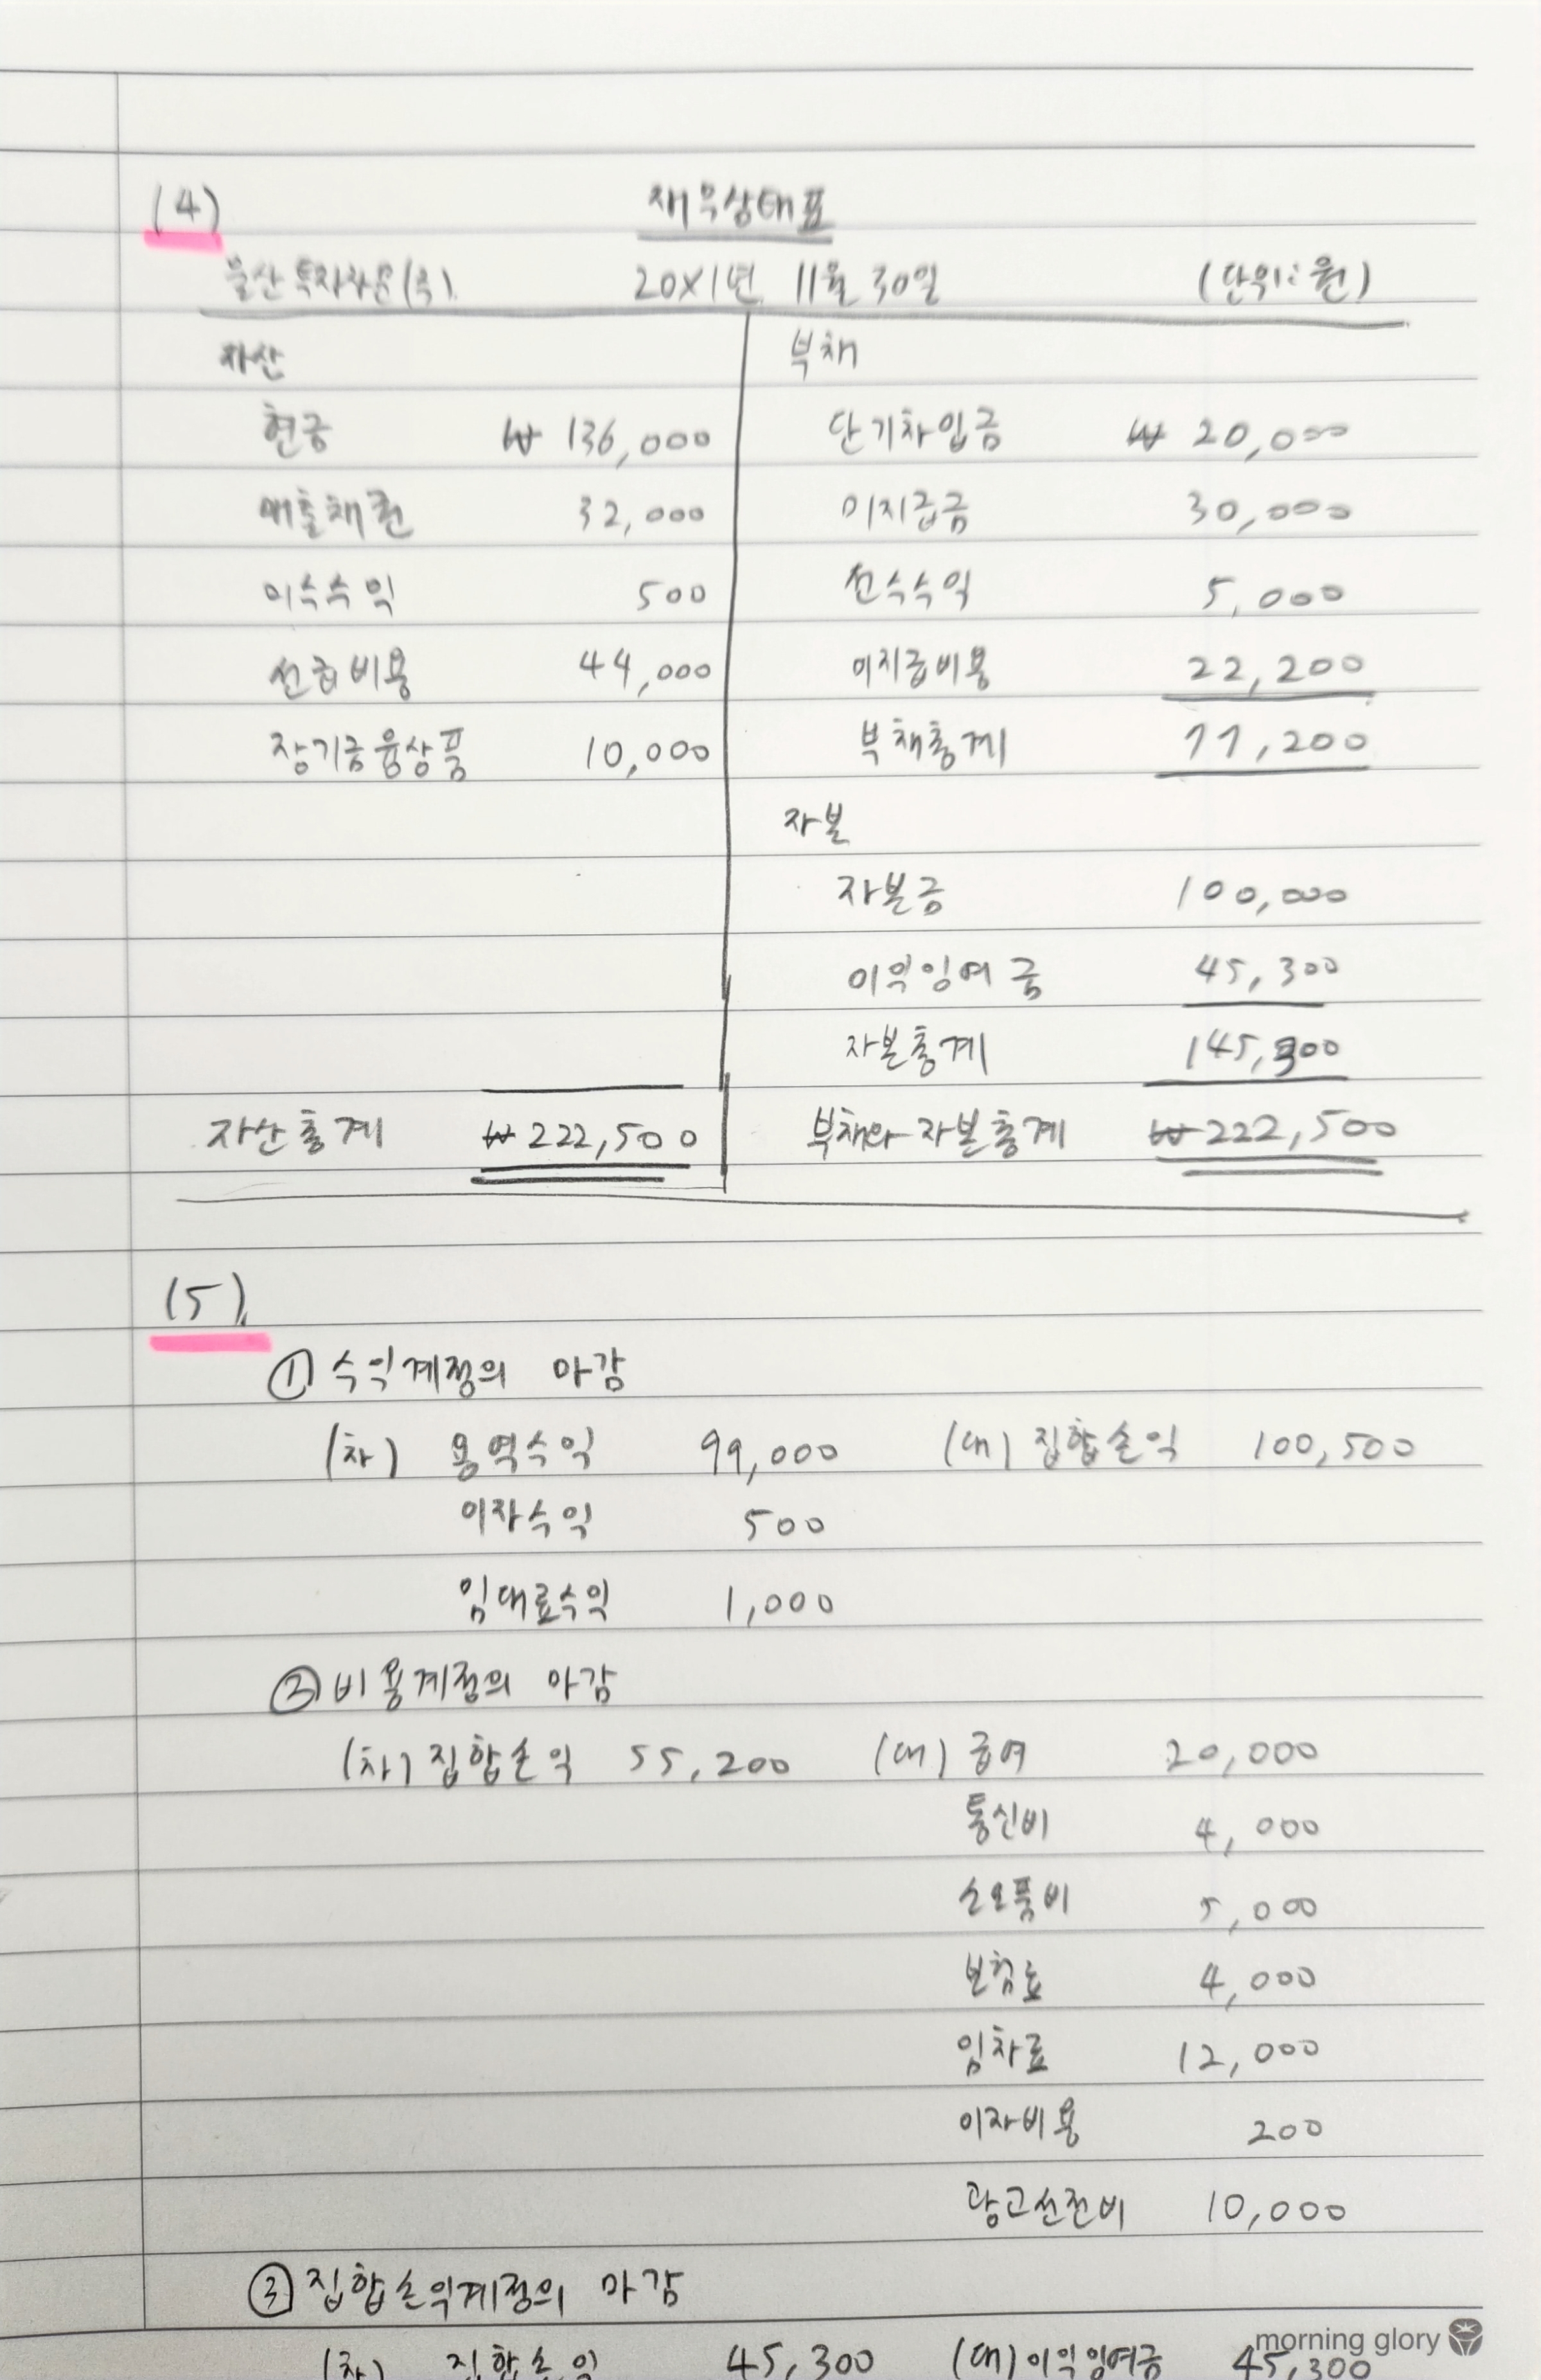 (4) 재무상태표
울산투자자문(주) 20X1년 11월 30일 (단위:원)
자산 부채
현금 ₩ 136,000 단기차입금 ₩ 20,000
매출채권 32,000 미지급금 30,000
미수수익 500 선수수익 5,000
선급비용 44,000 미지급비용 22,200
장기금융상품 10,000 부채총계 77,200
자본
자본금 100,000
이익잉여금 45,300
자본총계 145,300
자산총계 ₩222,500 부채와 자본총계 ₩222,500
(5)
① 수익계정의 마감
(차) 용역수익 99,000 (대) 집합손익 100,500
이자수익 500
임대료수익 1,000
② 비용계정의 마감
(차) 집합손익 55,200 (대) 급여 20,000
통신비 4,000
소모품비 5,000
보험료 4,000
임차료 12,000
이자비용 200
광고선전비 10,000
③ 집합손익계정의 마감
(차) 집합손익 45,300 (대) 이익잉여금 45,300
morning glory